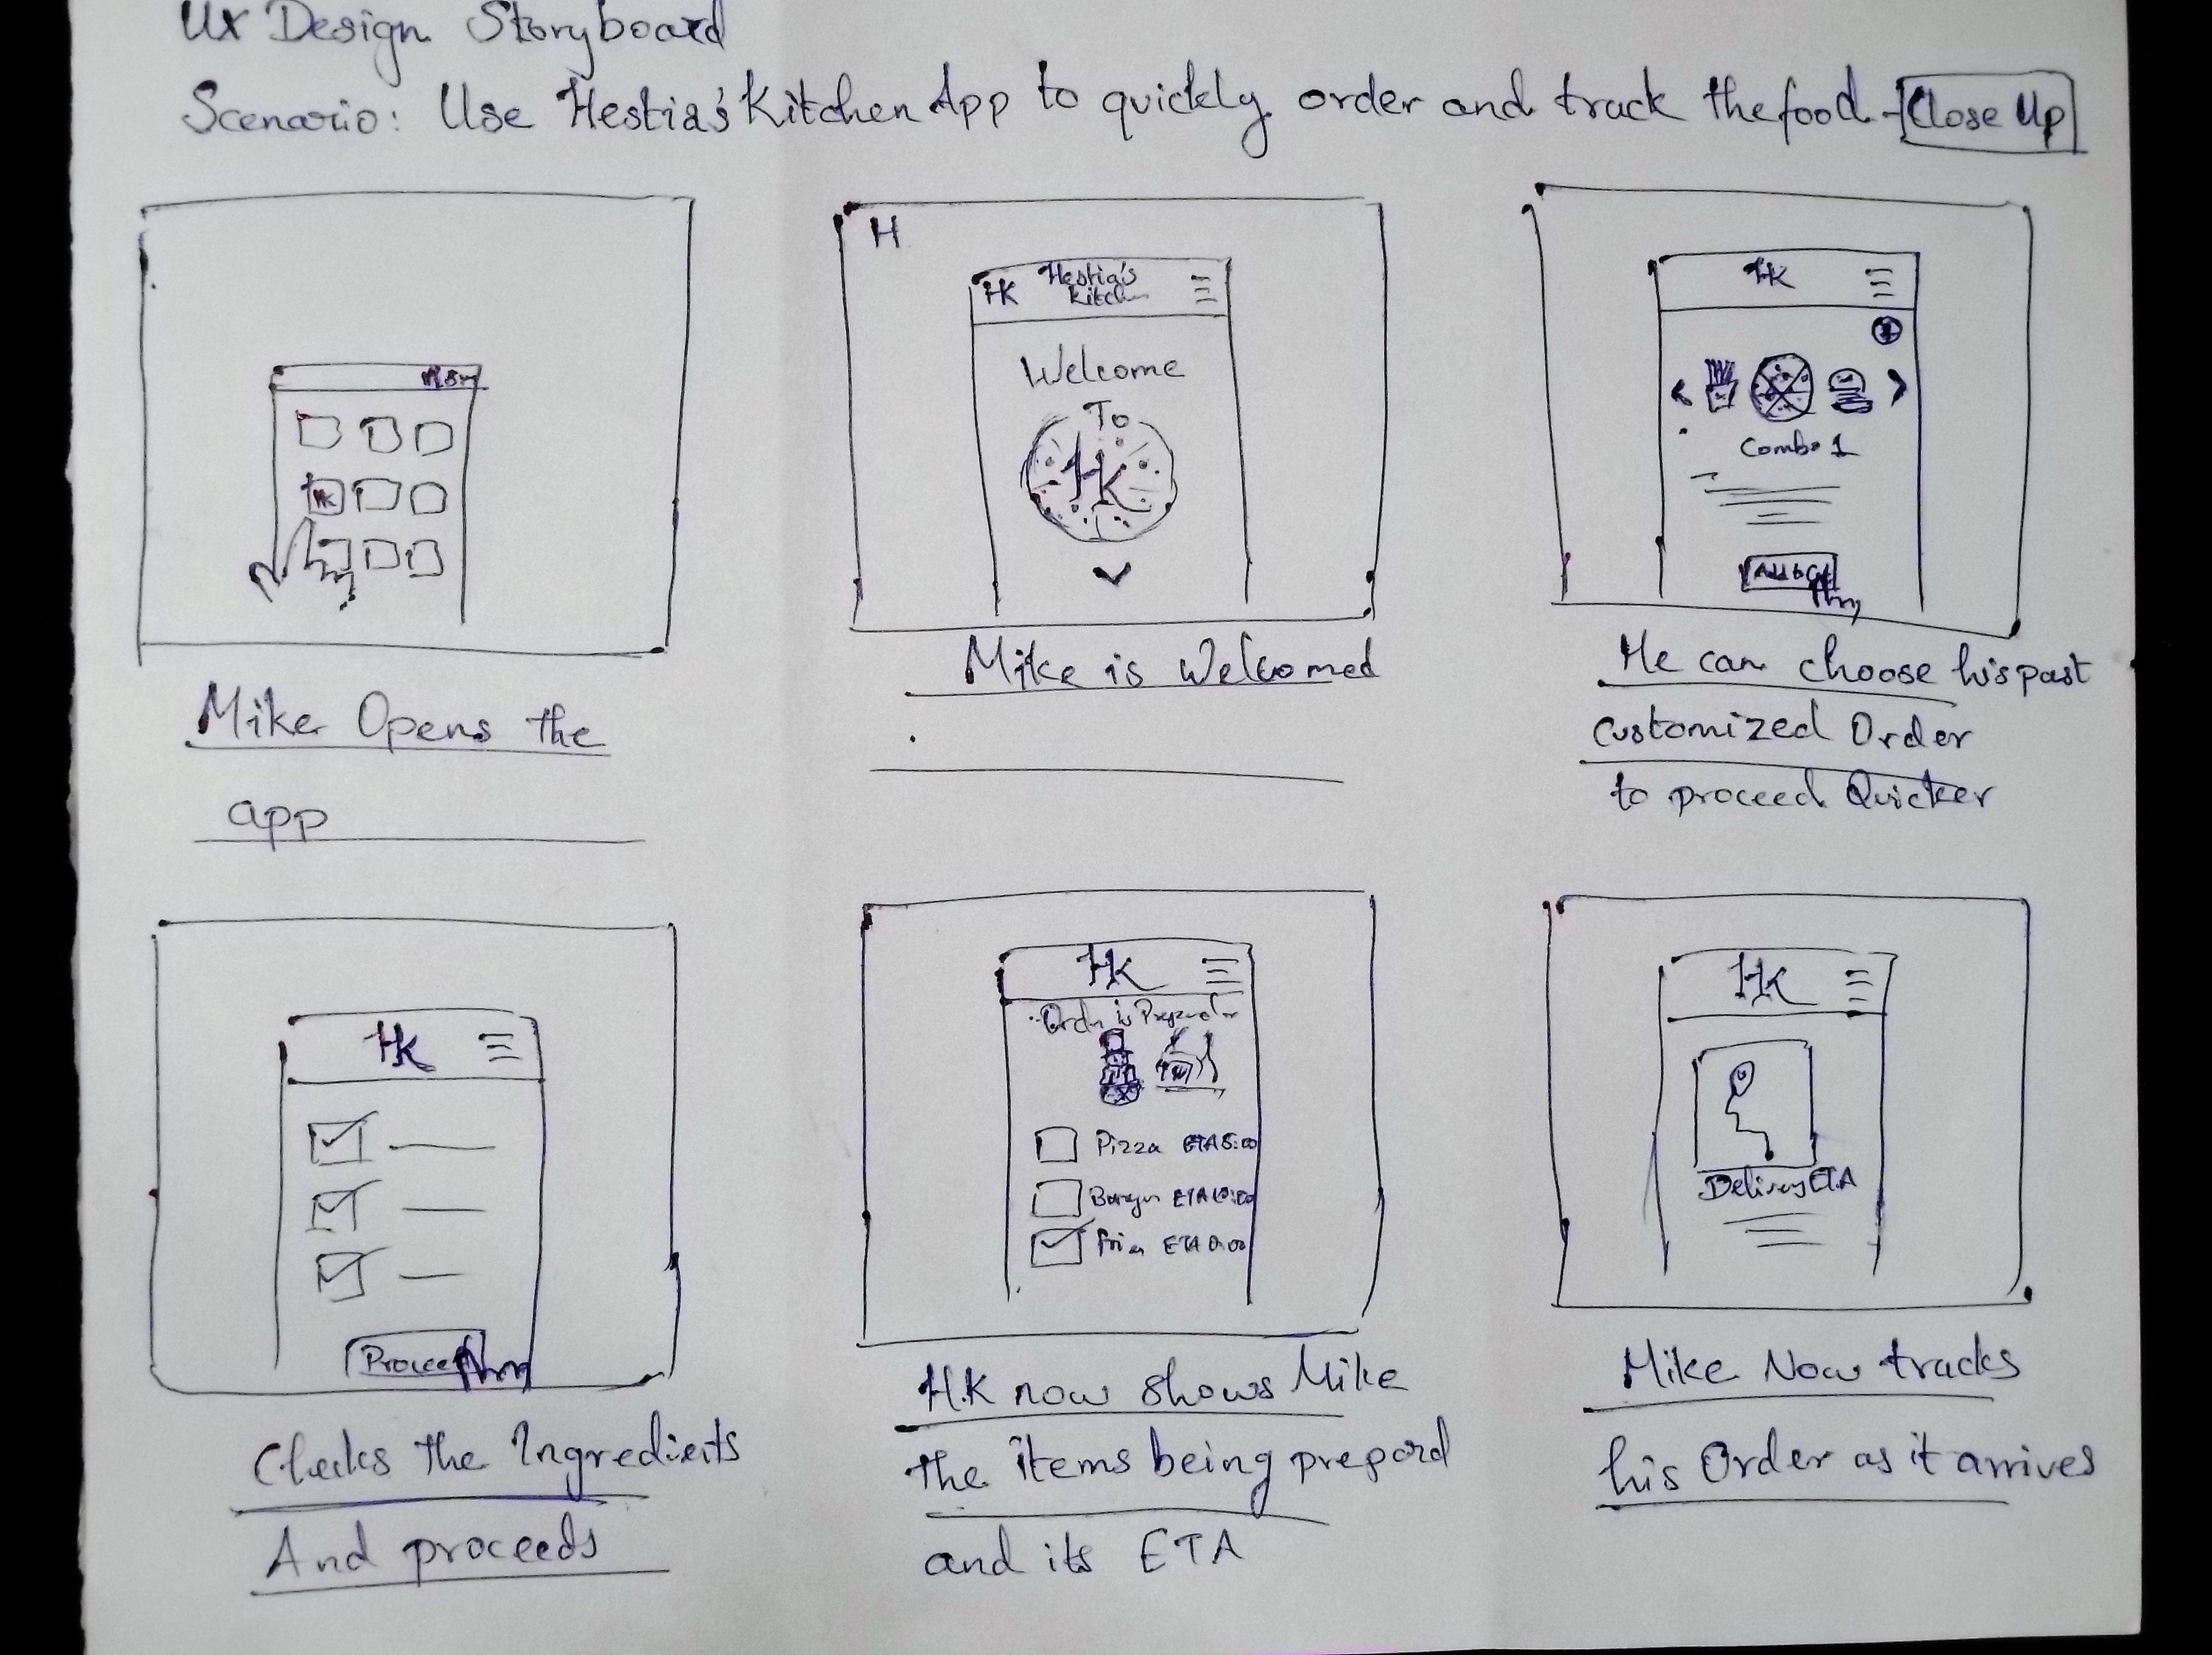 UX Design Storyboard
Scenario: Use Hestia's Kitchen App to quickly order and track the food - Close Up
Mike Opens the
app
H
HK Hestia's
Welcome
To
HK
Mike is Welcomed
HK
Combo 1
He can choose his past
Customized Order
to proceed Quicker
HK
Checks the Ingredients
And proceeds
HK
Pizza ETA 5:00
ETA
ETA 0:00
H.K now shows Mike
the items being prepard
and its ETA
HK
Delivery ETA
Mike Now tracks
his Order as it arrives